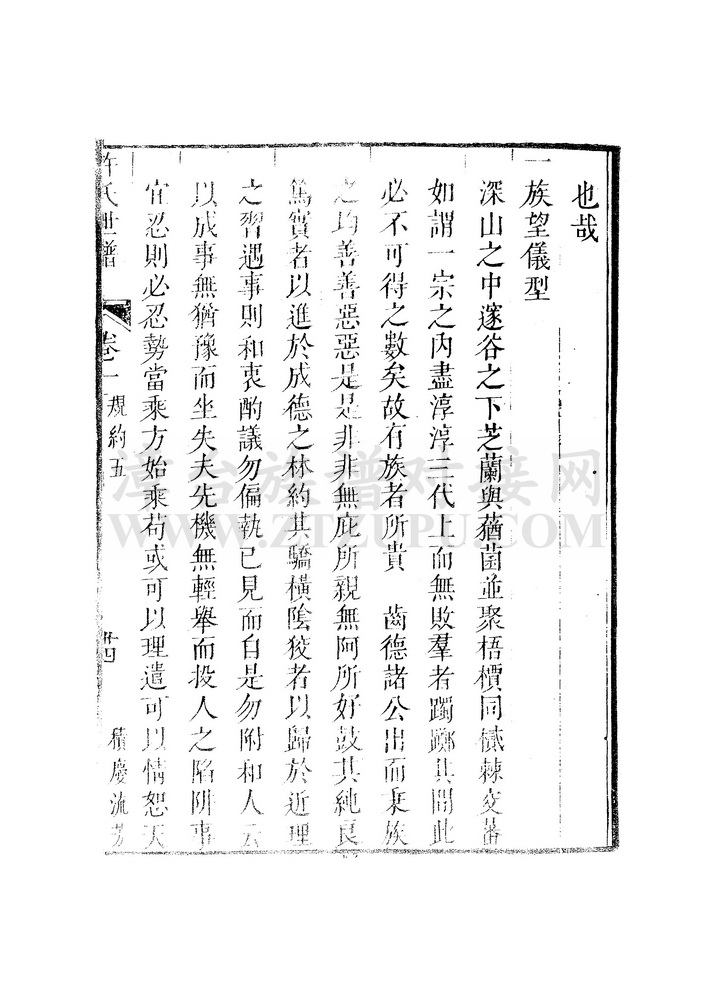 也哉
一族望儀型
深山之中邃谷之下芝蘭與蕕菌並聚梧檟同樲棘交蕃
如謂一宗之內盡淳淳三代上而無敗羣者躑躅其間此
必不可得之數矣故有族者所貴　齒德諸公出而秉族
之均善善惡惡是是非非無庇所親無阿所好鼓其純良
篤實者以進於成德之林約其驕橫陰狡者以歸於近理
之習遇事則和衷酌議勿偏執己見而自是勿附和人云
以成事無猶豫而坐失夫先機無輕舉而投人之陷阱事
宜忍則必忍勢當乘方始乘苟或可以理遣可以情恕天
許氏世譜　卷一　規約五　廿四　積慶流芳
漳台族譜对接网
WWW.ZTZUPU.COM